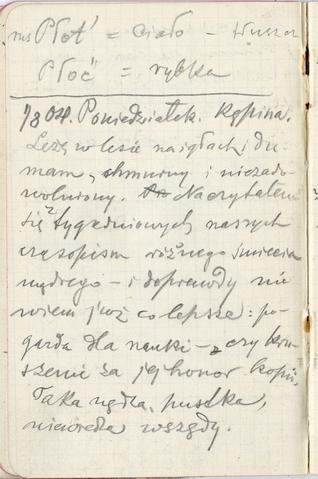 rus Płot' = ciało - tłuszcz
Płoć = rybka
1/8 04. Poniedziałek. Kępina.
Leżę w lesie na igłach i du-
mam, chmurny i niezado-
wolniony. Naczytałem
się z tygodniowych naszych
czasopism różnego śmiecia
mądrego - i doprawdy nie
wiem już co lepsze: po-
garda dla nauki - czy kru-
szenie za jej honor kopii,
Taka nędza, pustka,
niedorzeczna wszędy.